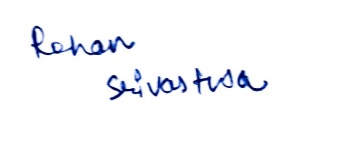 Rohan
Srivastva